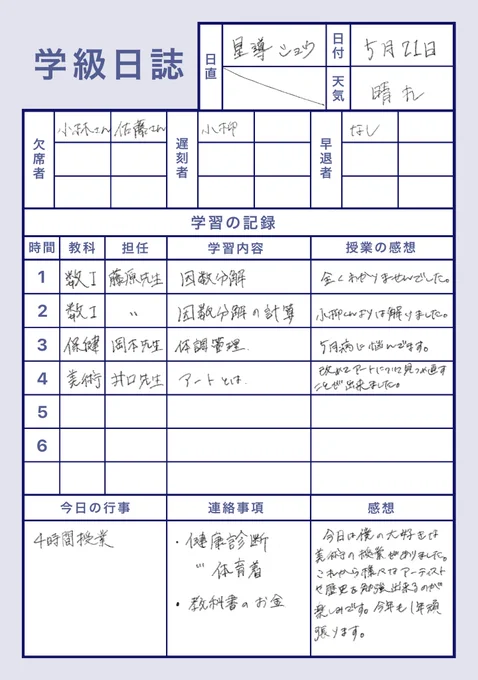 学級日誌
日直
星導ショウ
日付
5月21日
天気
晴れ
欠席者
小林さん
佐藤さん
遅刻者
小柳
早退者
なし
学習の記録
時間 教科 担任 学習内容 授業の感想
1 数I 藤原先生 因数分解 全くわかりませんでした。
2 数I 〃 因数分解の計算 小柳くんよりは解りました。
3 保健 岡本先生 体調管理 5月病に悩んでます。
4 美術 井口先生 アートとは、 改めてアートについて見つめ直す
ことが出来ました。
5
6
今日の行事
4時間授業
連絡事項
・健康診断
〃 体育着
・教科書のお金
感想
今日は僕の大好きな
美術の授業がありました。
これから様々なアーティスト
や歴史を勉強出来るのが
楽しみです。今年も1年頑
張ります。